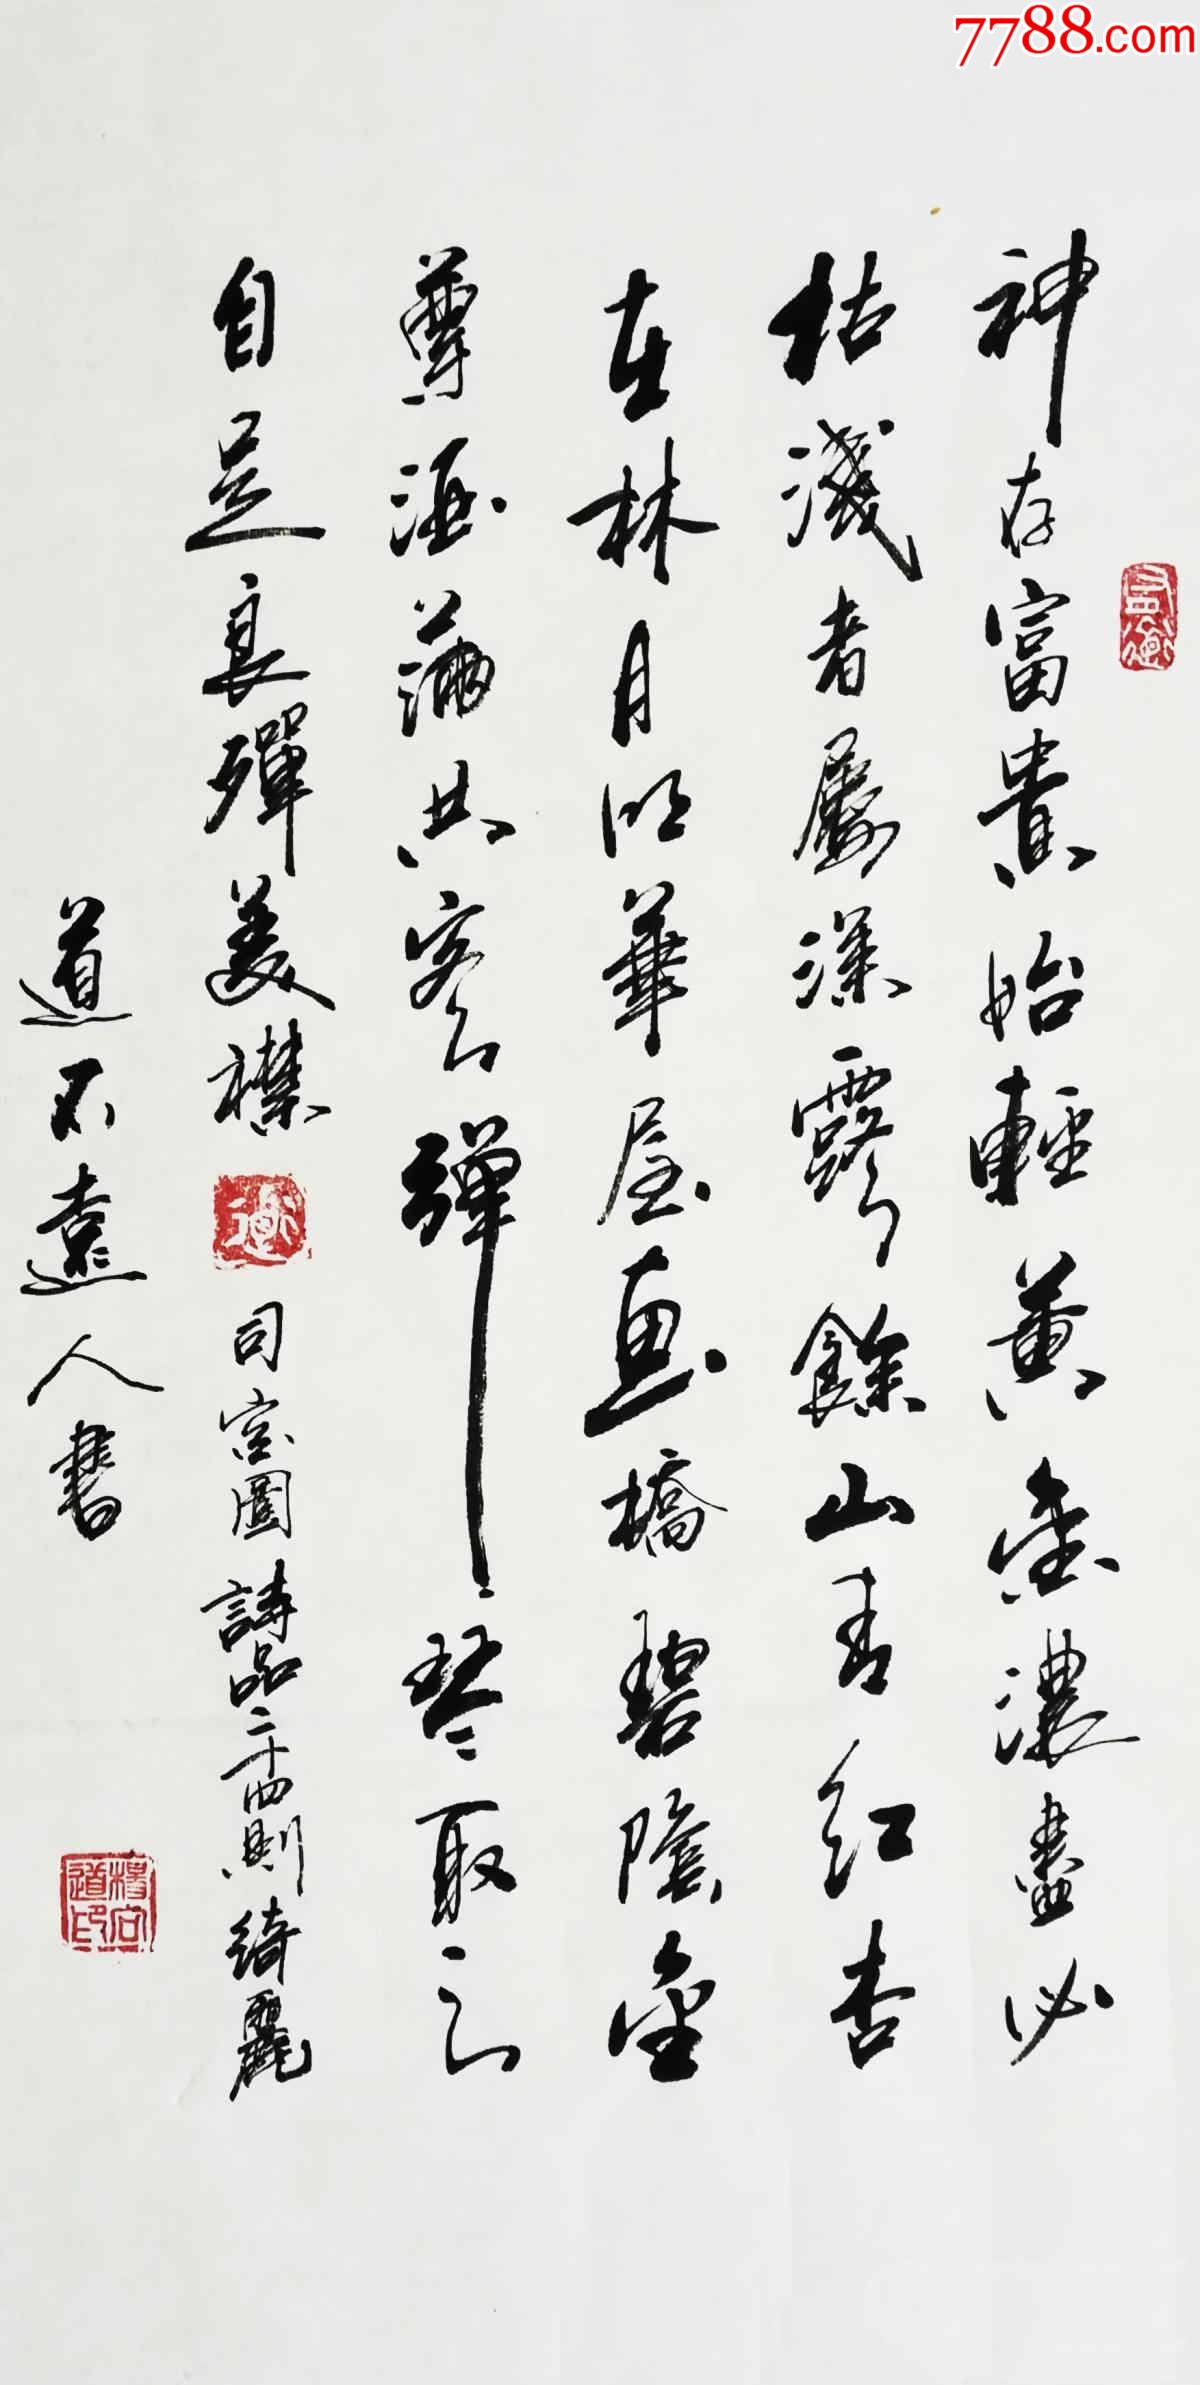 7788.com
神存富貴始輕黃金濃盡必
枯淺者屢深露餘山青紅杏
在林月明華屋畫橋碧陰金
尊酒滿共客彈琴取之
自足良殫美襟
司空圖詩品二十四則綺麗
道不遠人書